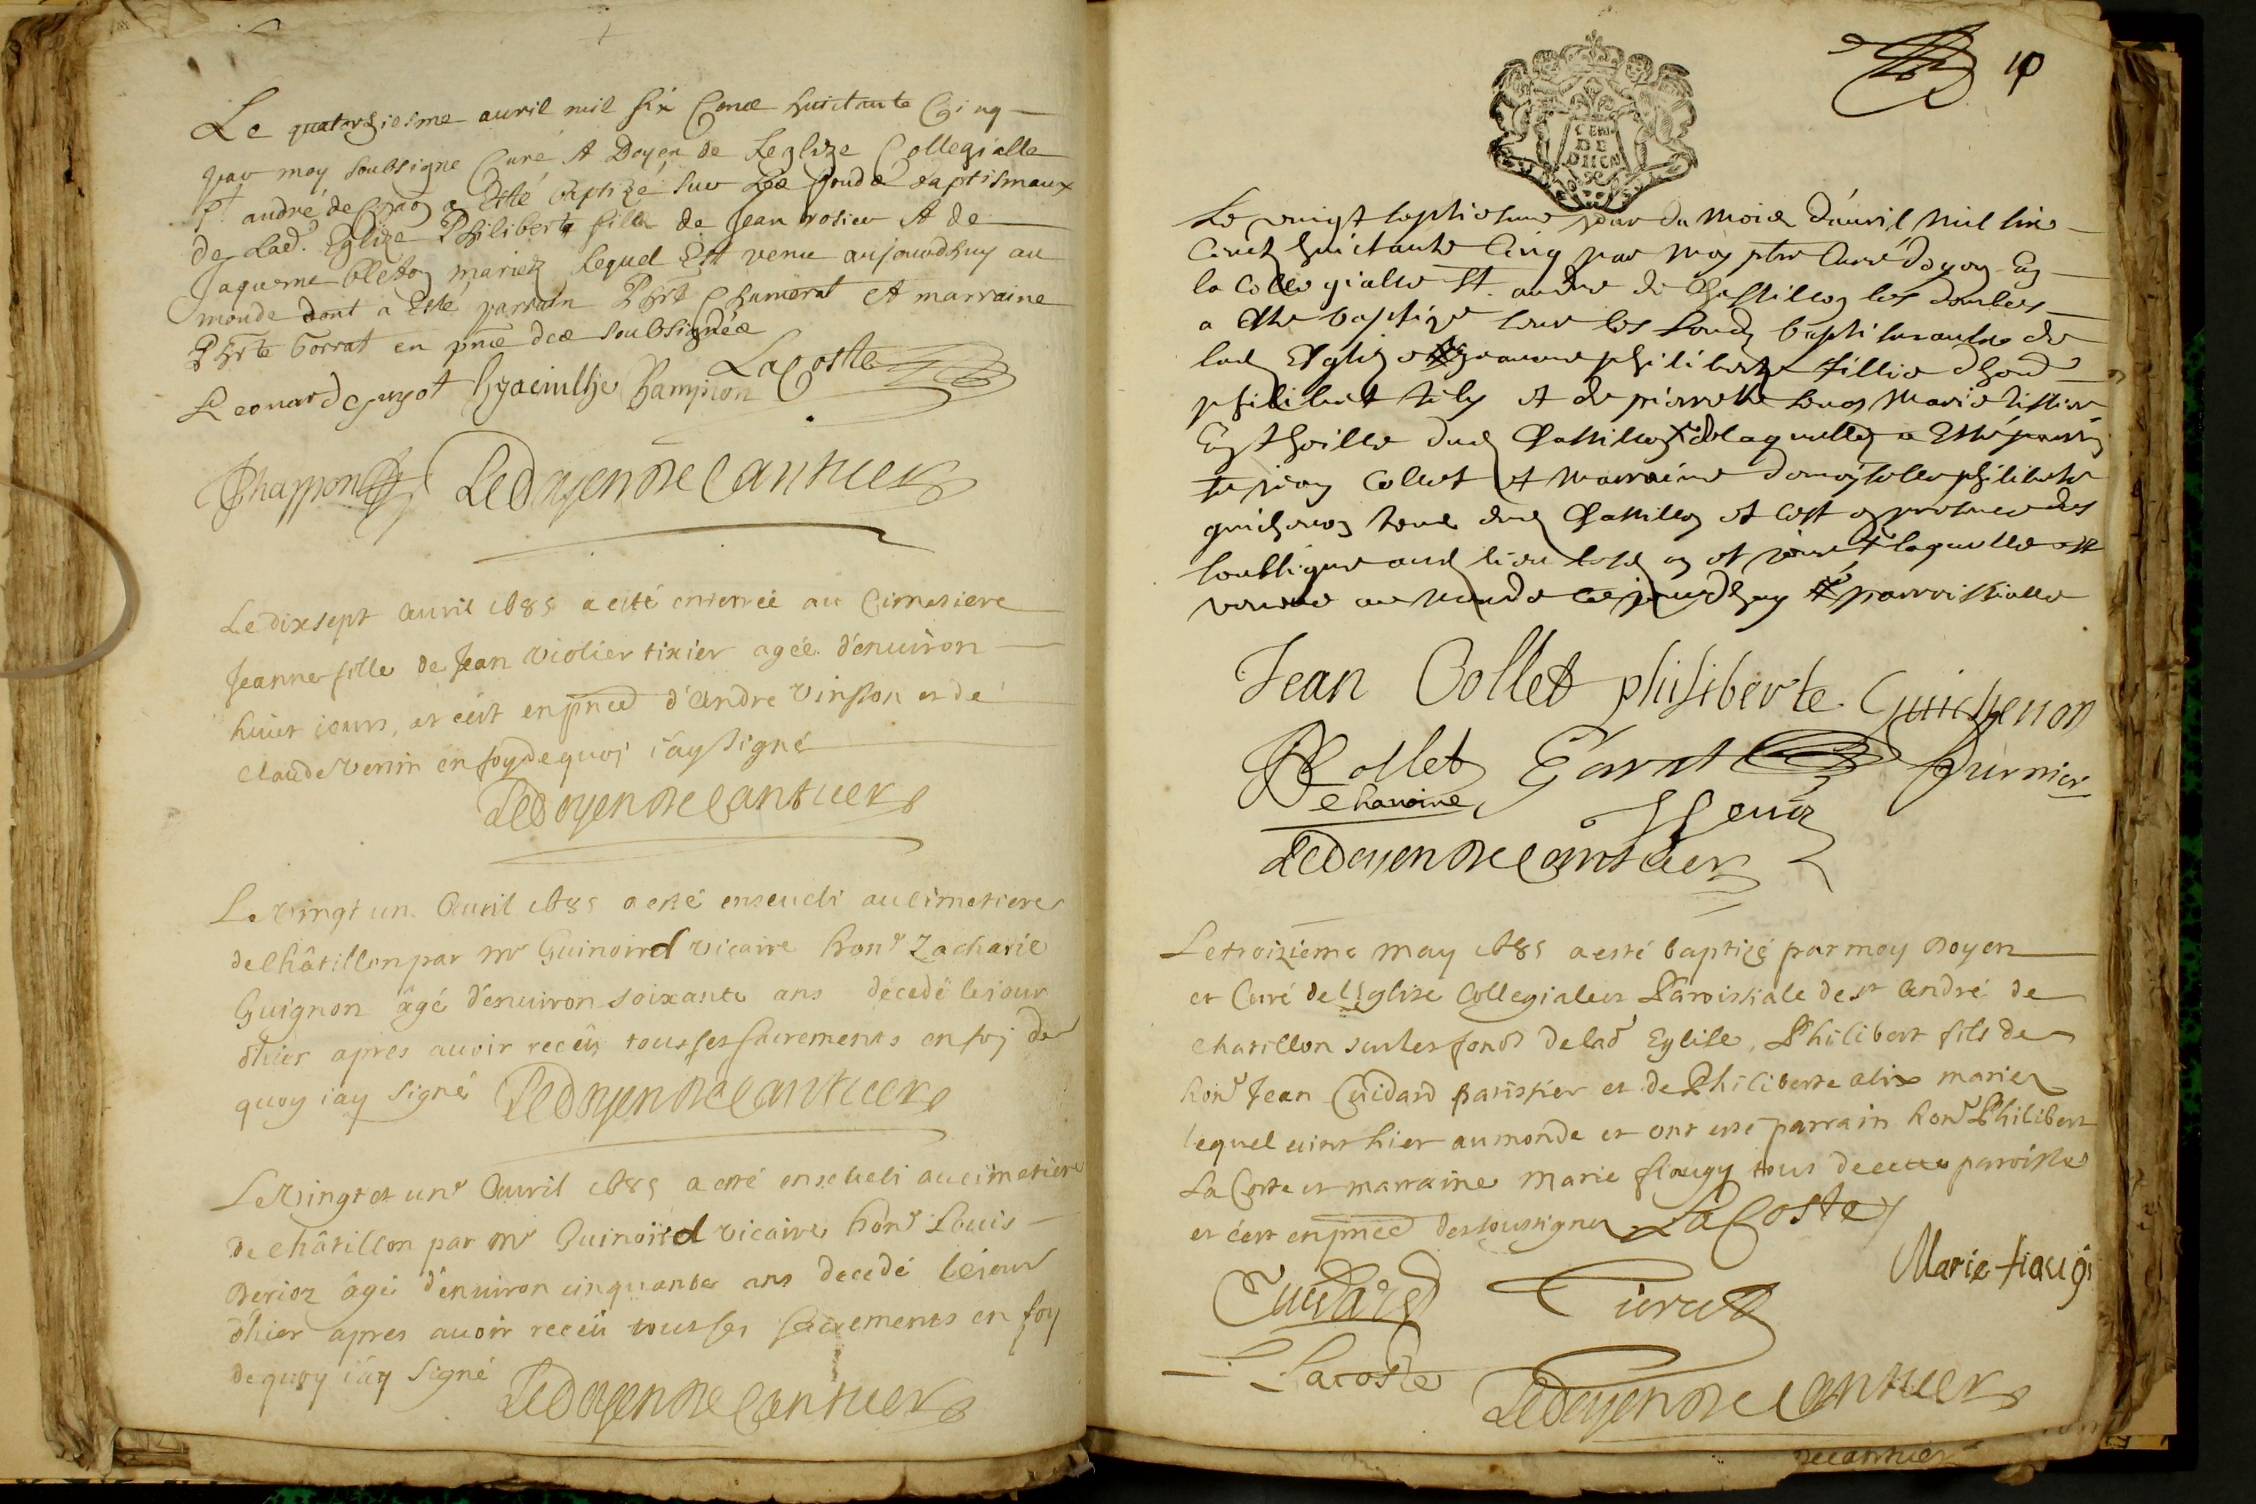 Le quatorziesme auril mil six Cens huictante Cinq
par moy soubsigne Curé et Doyen de Leglize Collegialle
St. andré de a Esté baptizé sur Les fondz baptismaux
de Lad. Eglize Philiberte fille de Jean rosier et de
Jaqueme bleton mariez lequel Est venu aujourdhuy au
monde dont a Esté parrain Phrt Chamerat et marraine
Phrte borrat en pnce des soubsignés
LaCoste
Leonard guyot hyacinthe Bampion
Chappon LeDoyen De Cantuer
Le dixsept Auril 1685 a esté enterrée au Cimetiere
Jeanne fille de Jean Violier tixier agée d'enuiron
huict iours, et c'est en pnce d'Andre Vinsson et de
Claude Verin en foy de quoi i'ay signé
LeDoyen De Cantuer
Le Vingt un Auril 1685 a esté enseueli au cimetiere
de Châtillon par mr Guinoird vicaire hon. Zacharie
Guignon âgé d'enuiron soixante ans décedé le iour
d'hier apres auoir receu tous ses sacrements en foj de
quoy i'ay signé LeDoyen De Cantuer
Le Vingt et un. Auril 1685 a esté enseueli au cimetiere
de Châtillon par mr Guinoird vicaire hon. Louis
Derioz âgé d'enuiron cinquante ans decedé le iour
d'hier apres auoir receu tous ses sacrements en foy
de quoy i'ay signé
LeDoyen De Cantuer
10
Le vingt septiesme jour du Mois d'auril Mil six
Centz huictante Cinq par Moy ptre Curé doyen En
la Collegialle St. andre de Chastillon les dombes
a Esté baptizé sur les fondz baptismaulx de
lad Esglize jeanne philiberte fillie d'hon.
philibert et de pierrette Marie
dud Chastillon de laquelle a Esté parrin
jean Collet et Marraine damoyselle philiberte
guichenon tous dud Chastillon et c'est en presence des
soubsignes aud lieu et jour laquelle est
venue au Monde ce jourdhuy parroissialle
Jean Collet philiberte Guichenon
Collet Garat Furnier
chanoine
LeDoyen De Cantuer
Le troizieme May 1685 a esté baptizé par moy Doyen
et Curé de l'Eglise Collegiale et Paroissiale de st André de
Chatillon sur les fonds de lad Eglise, Philibert fils de
hon. Jean Cuidard patissier et de Philiberte alix mariez
lequel vint hier au monde et ont esté parrain hon. Philibert
La Coste et marraine Marie fiaugy tous de cette paroisse
et c'est en pnce des soussignez LaCoste
Marie fiaugi
Cuidard
Lacoste
LeDoyen De Cantuer